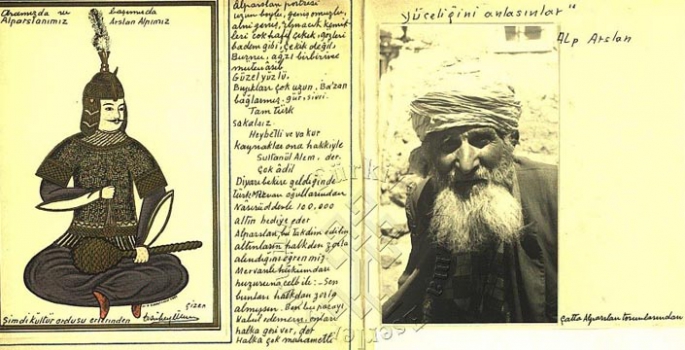 Aramızda ve başımızda
Alparslanımız Arslan Alpımız
çizen
Şimdi kültür ordusu erlerinden
Alparslan portresi
uzun boylu, geniş omuzlu,
alnı geniş, elmacık kemik-
leri çok hafif çıkık, gözleri
badem gibi, çekik değil,
Burnu, ağzı birbirine
mütenasib
Güzel yüzlü.
Bıyıkları çok uzun, Ba'zan
bağlarmış, gür, sivri.
Tam türk
sakalsız.
Heybetli ve vakur
Kaynaklar ona hakkiyle
Sultanül Alem, der.
Çok âdil
Diyarıbekire geldiğinde
türk Mervan oğullarından
Nasırüddevle 100,000
altın hediye eder
Alparslan, bu takdim edilen
altınların halkdan zorla
alındığını öğrenmiş
Mervanlı hükümdarı
huzuruna celb ile: - Sen
bunları halkdan zorla
almışsın. Ben bu parayı
Kabul edemem. onları
halka geri ver, der
Halka çok merhametli
yüceliğini anlasınlar"
Alp Arslan
Alparslan torunlarından